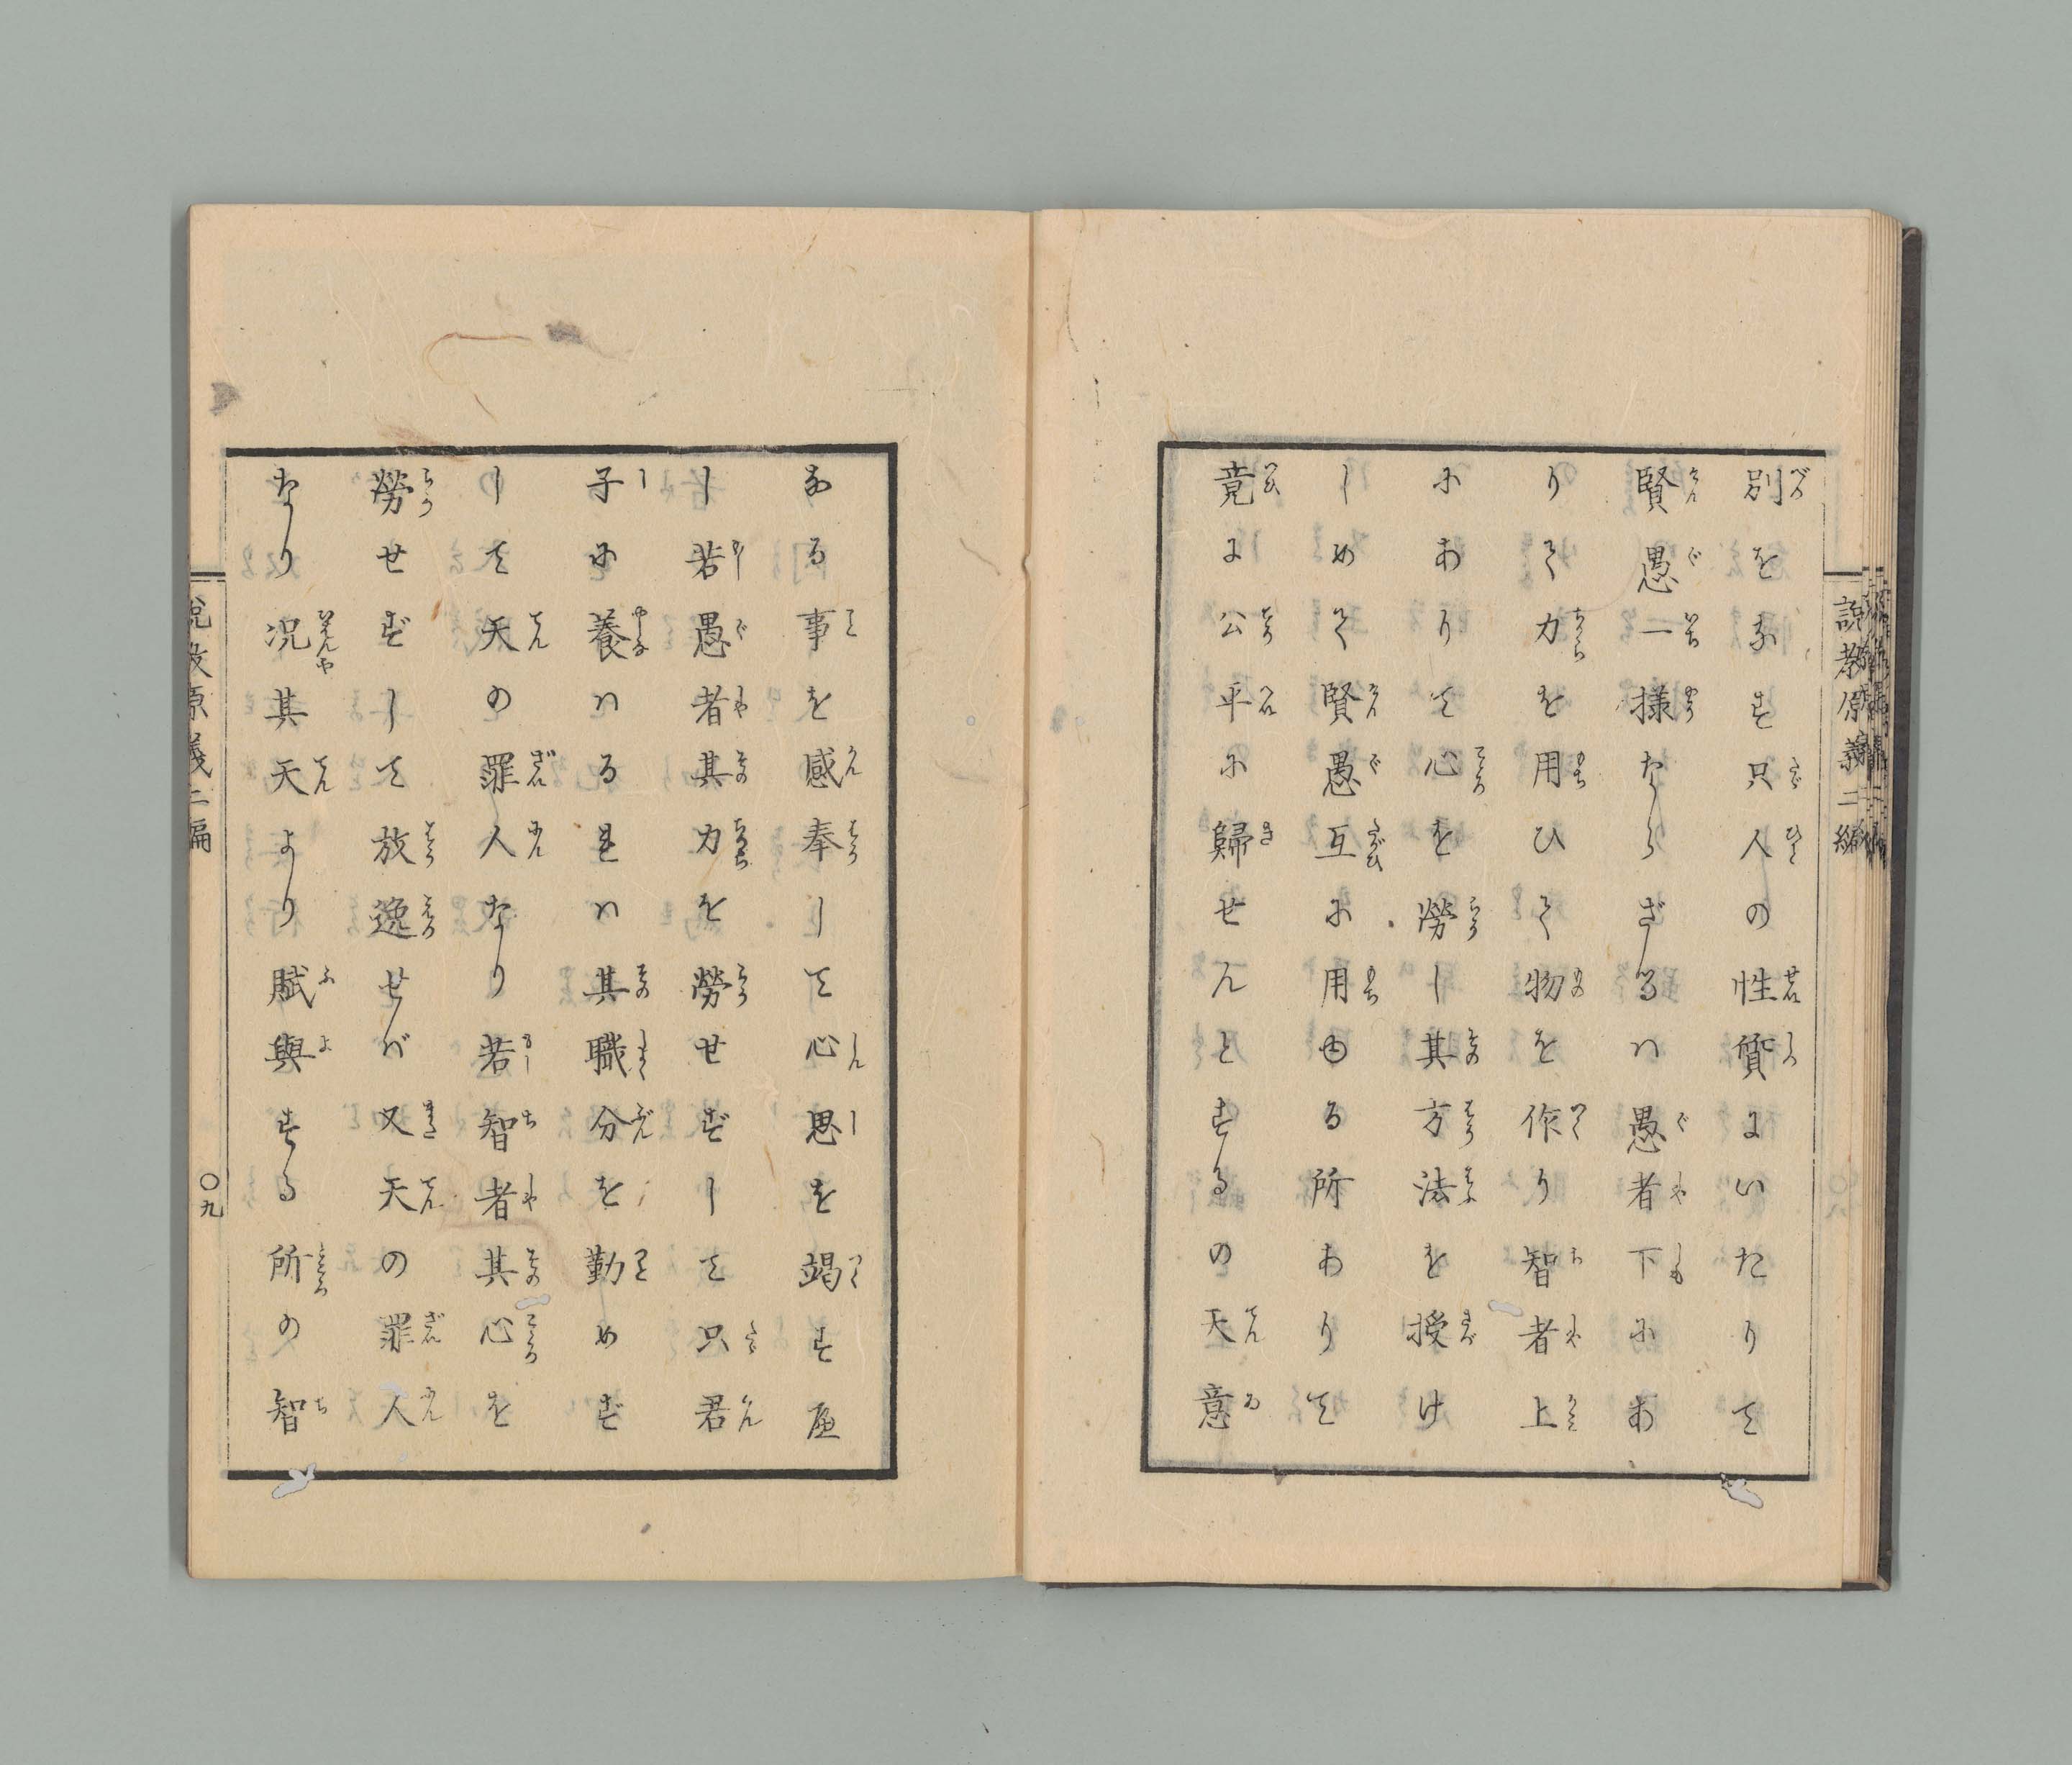 別をなす只人の性質にいたりて
賢愚一様ならざるハ愚者下にあ
りて力を用ひて物を作り智者上
にありて心を勞し其方法を授け
しめて賢愚互に用ゆる所ありて
竟に公平に歸せんとするの天意
なる事を感奉して心思を竭す应
し若愚者其力を勞せずして只君
子に養ハるれハ其職分を勤めず
して天の罪人なり若智者其心を
勞せずして放逸せバ又天の罪人
なり况其天より賦與する所の智
說教原義二編
〇九